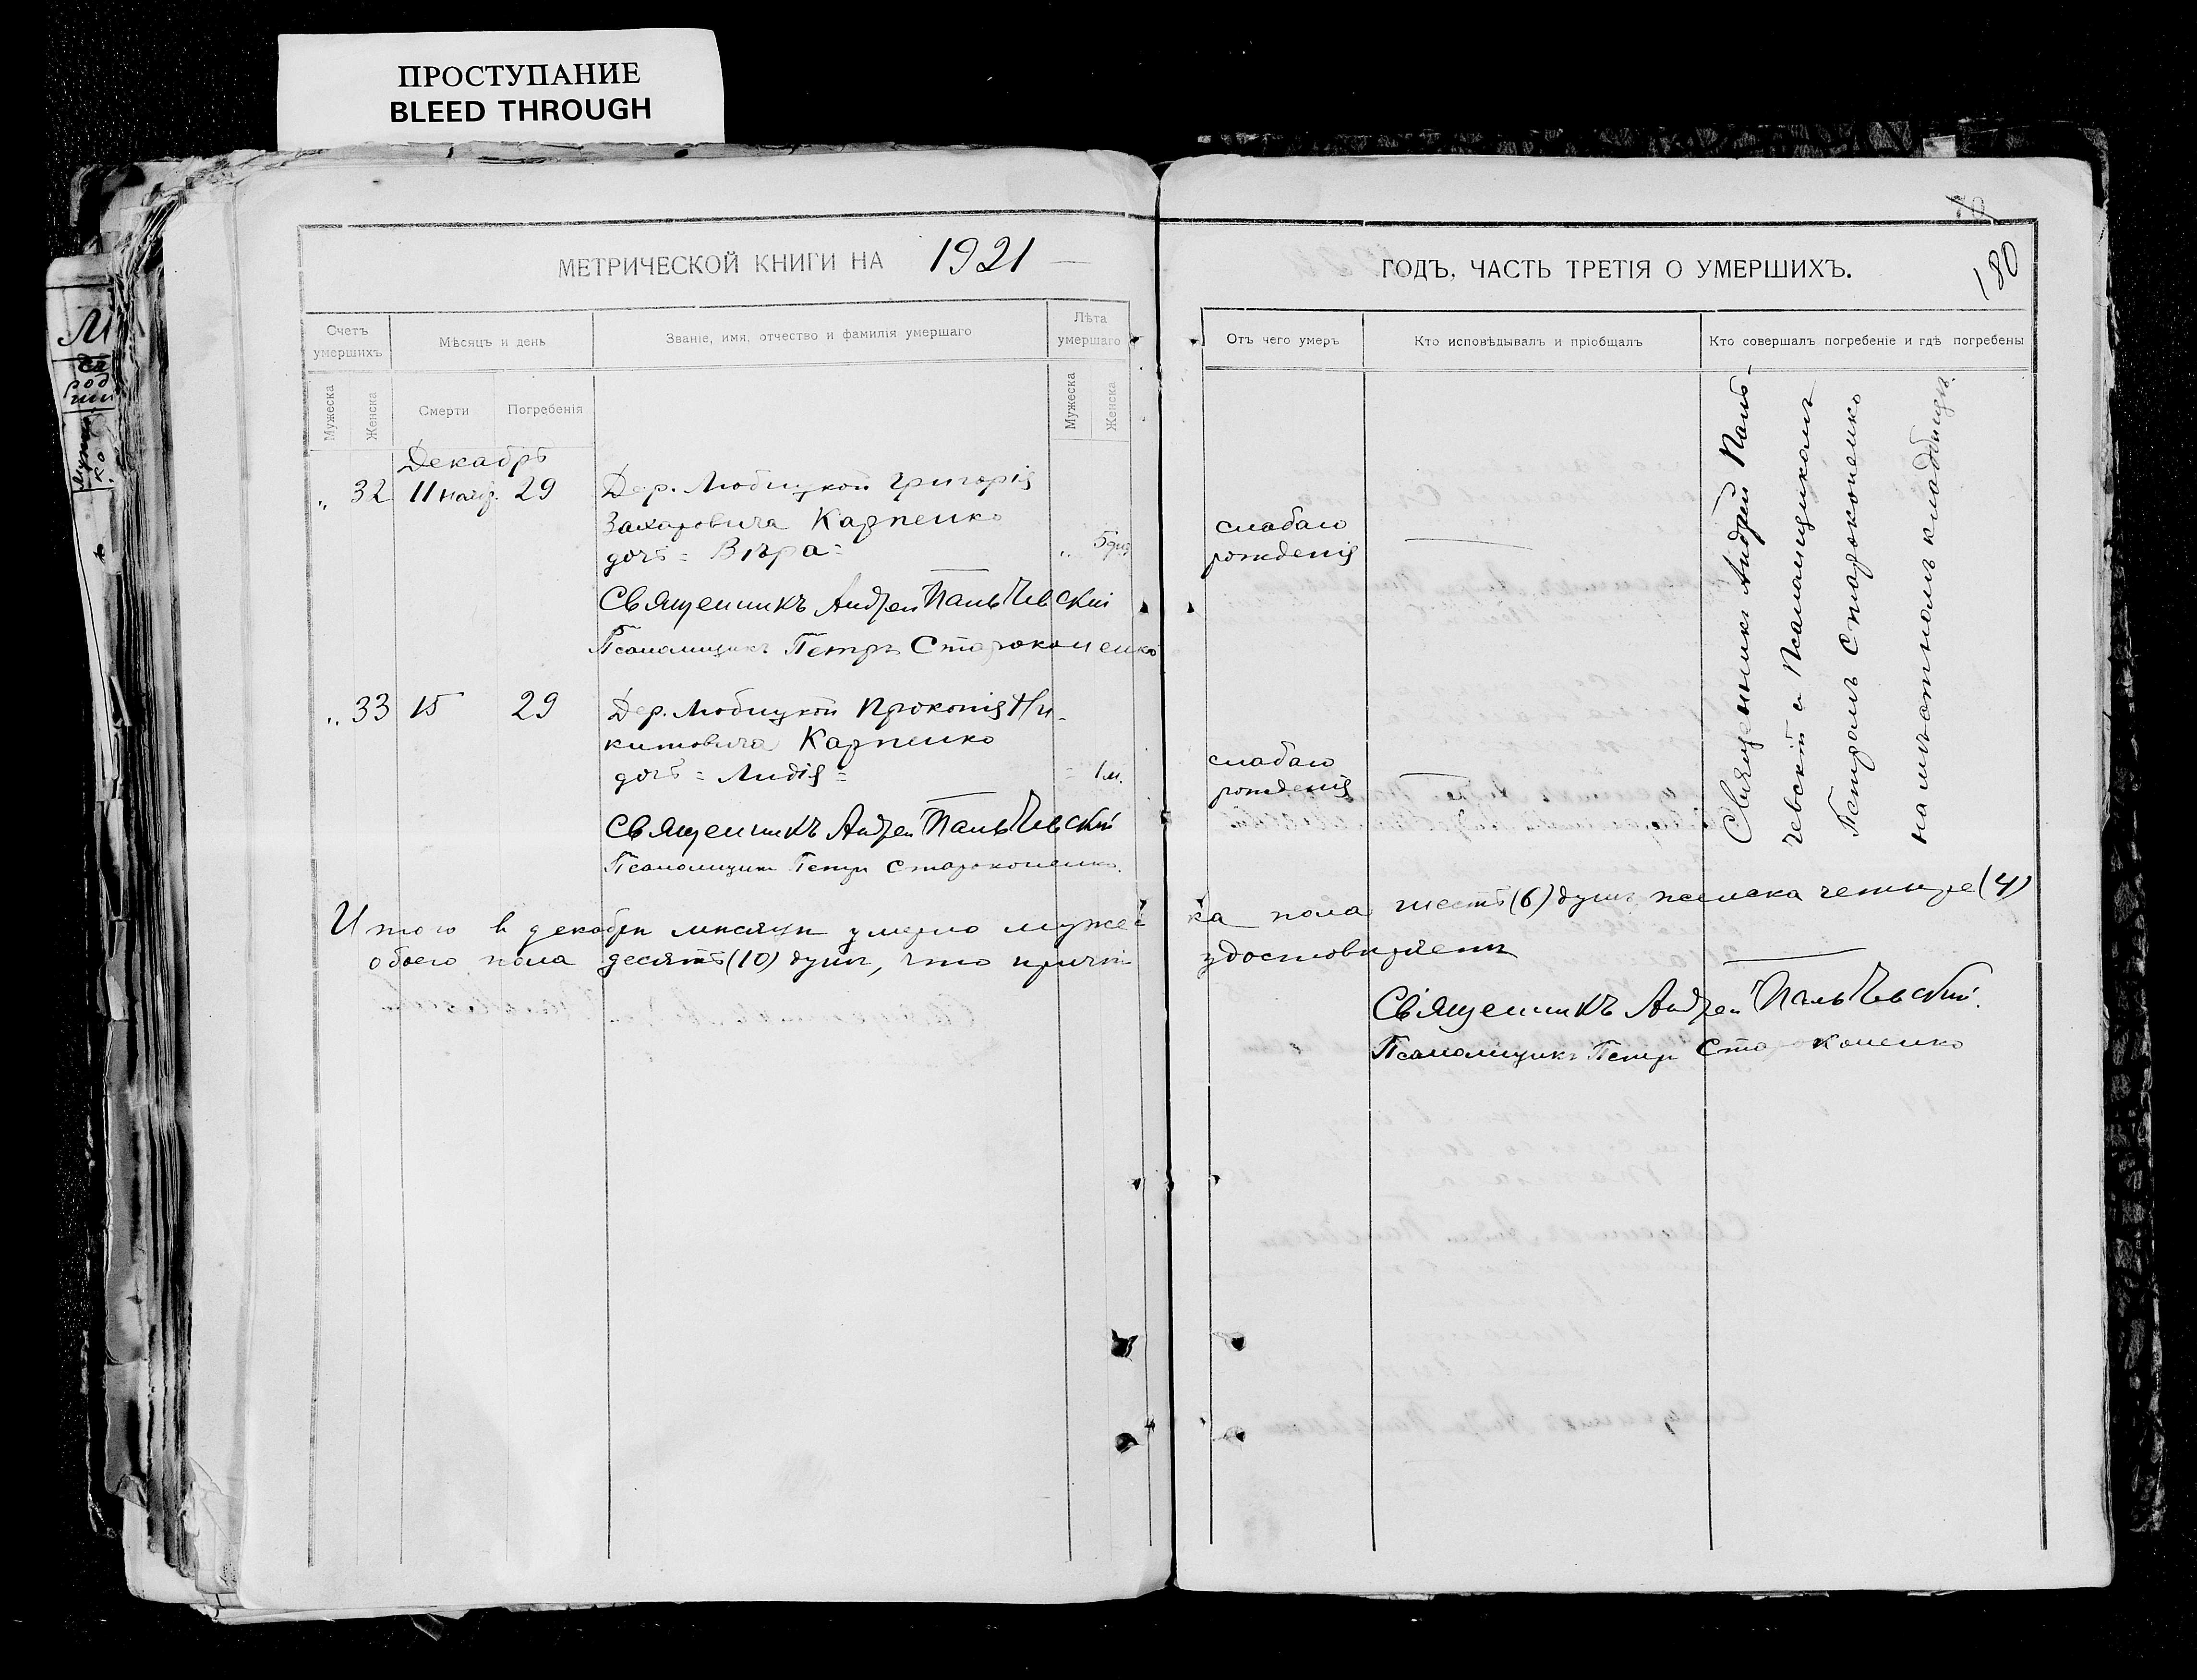 ПРОСТУПАНИЕ
BLEED THROUGH
МЕТРИЧЕСКОЙ КНИГИ НА 1921
Счетъ умершихъ
Мѣсяцъ и день
Званіе, имя, отчество и фамилія умершаго
Лѣта умершаго
Мужеска
Женска
Смерти
Погребенія
Мужеска
Женска
Декабрь
" 32 11 29 Дер. Любицкой Григорія
Захаровича Карпенко
дочь = Вѣра = " 5
Священникъ Андрей Пальчевскій
Псаломщикъ Петръ Староконенко
" 33 15 29 Дер. Любицкой Прокопія Ни-
китовича Карпенко
дочь = Лидія = = 1 м.
Священникъ Андрей Пальчевскій
Псаломщикъ Петръ Староконенко
Итого в декабрѣ мѣсяцѣ умерло мужес
обоего пола десять (10) душъ, что причтъ
70
180
ГОДЪ, ЧАСТЬ ТРЕТІЯ О УМЕРШИХЪ.
Отъ чего умеръ
Кто исповѣдывалъ и пріобщалъ
Кто совершалъ погребеніе и гдѣ погребены
слабаго
рожденія
слабаго
рожденія
Священникъ Андрей Паль-
чевскій с Псаломщикомъ
Петромъ Староконенко
на мѣстномъ кладбищѣ.
ка пола шесть (6) душъ женска четыре (4)
удостовѣряетъ
Священникъ Андрей Пальчевскій.
Псаломщикъ Петръ Староконенко